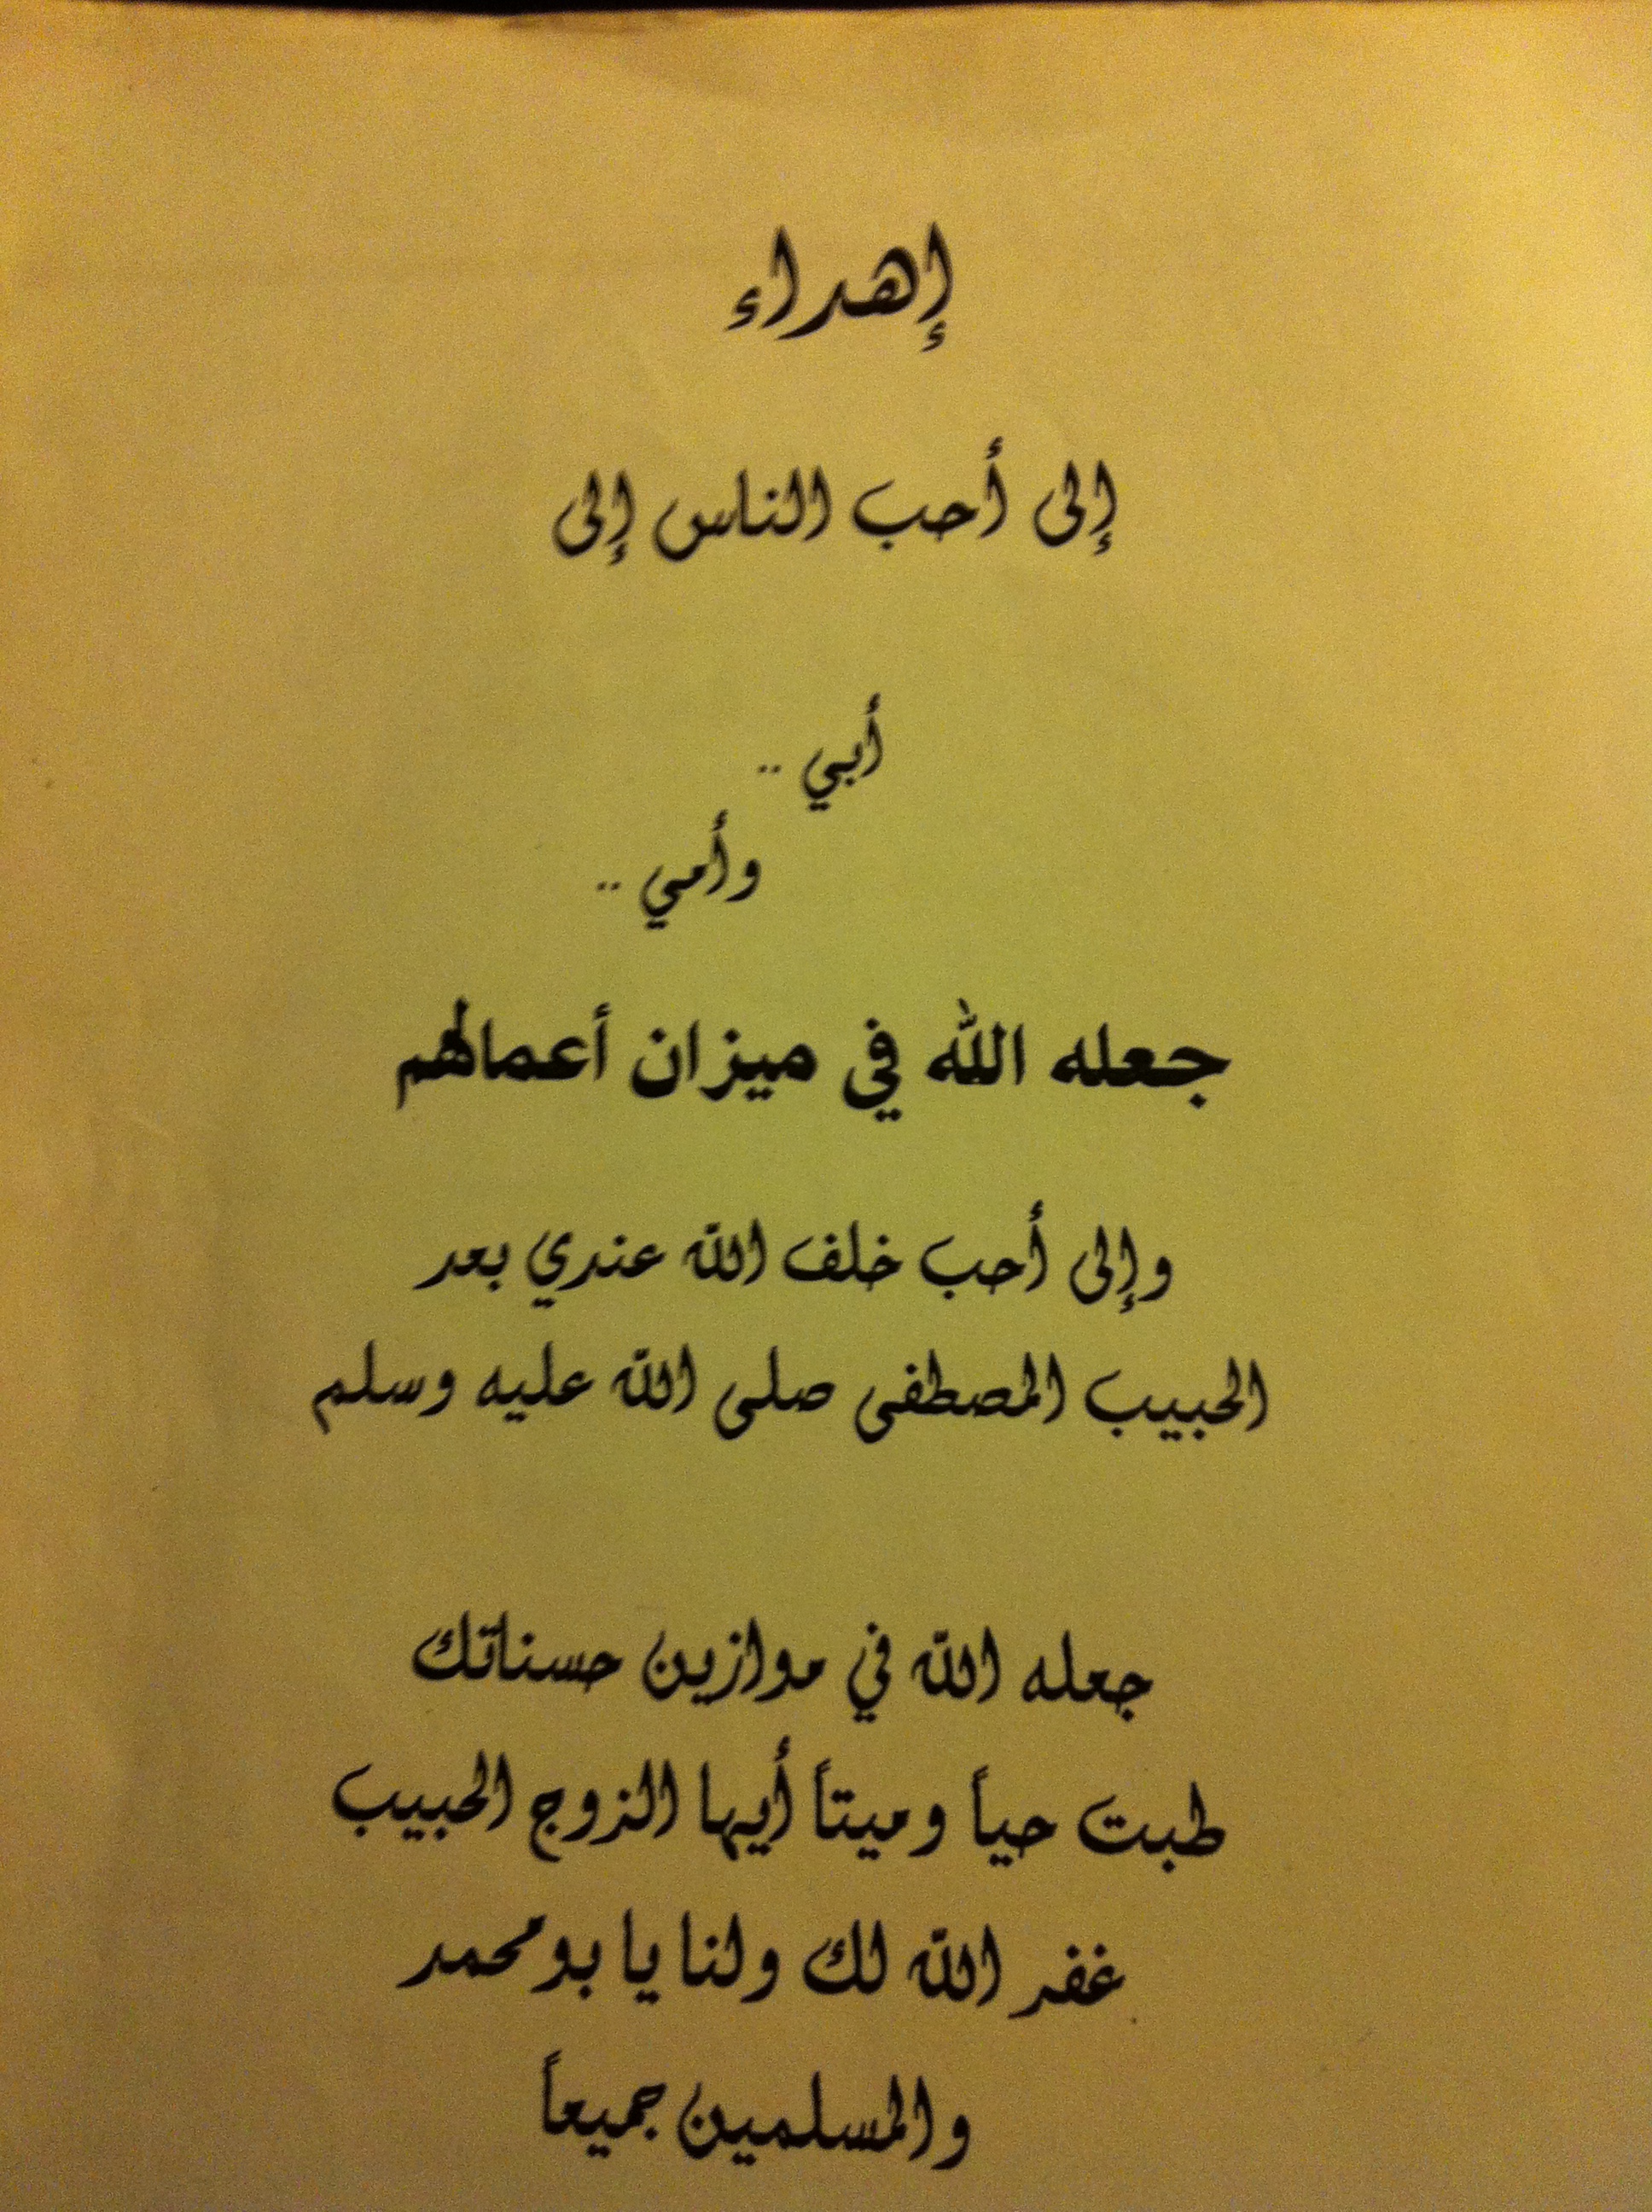 إهداء
إلى أحب الناس إلى
أبي ..
وأمي ..
جعله الله في ميزان أعمالهم
وإلى أحب خلف الله عندي بعد
الحبيب المصطفى صلى الله عليه وسلم
جعله الله في موازين حسناتك
طبت حياً وميتاً أيها الزوج الحبيب
غفر الله لك ولنا يا بومحمد
والمسلمين جميعاً